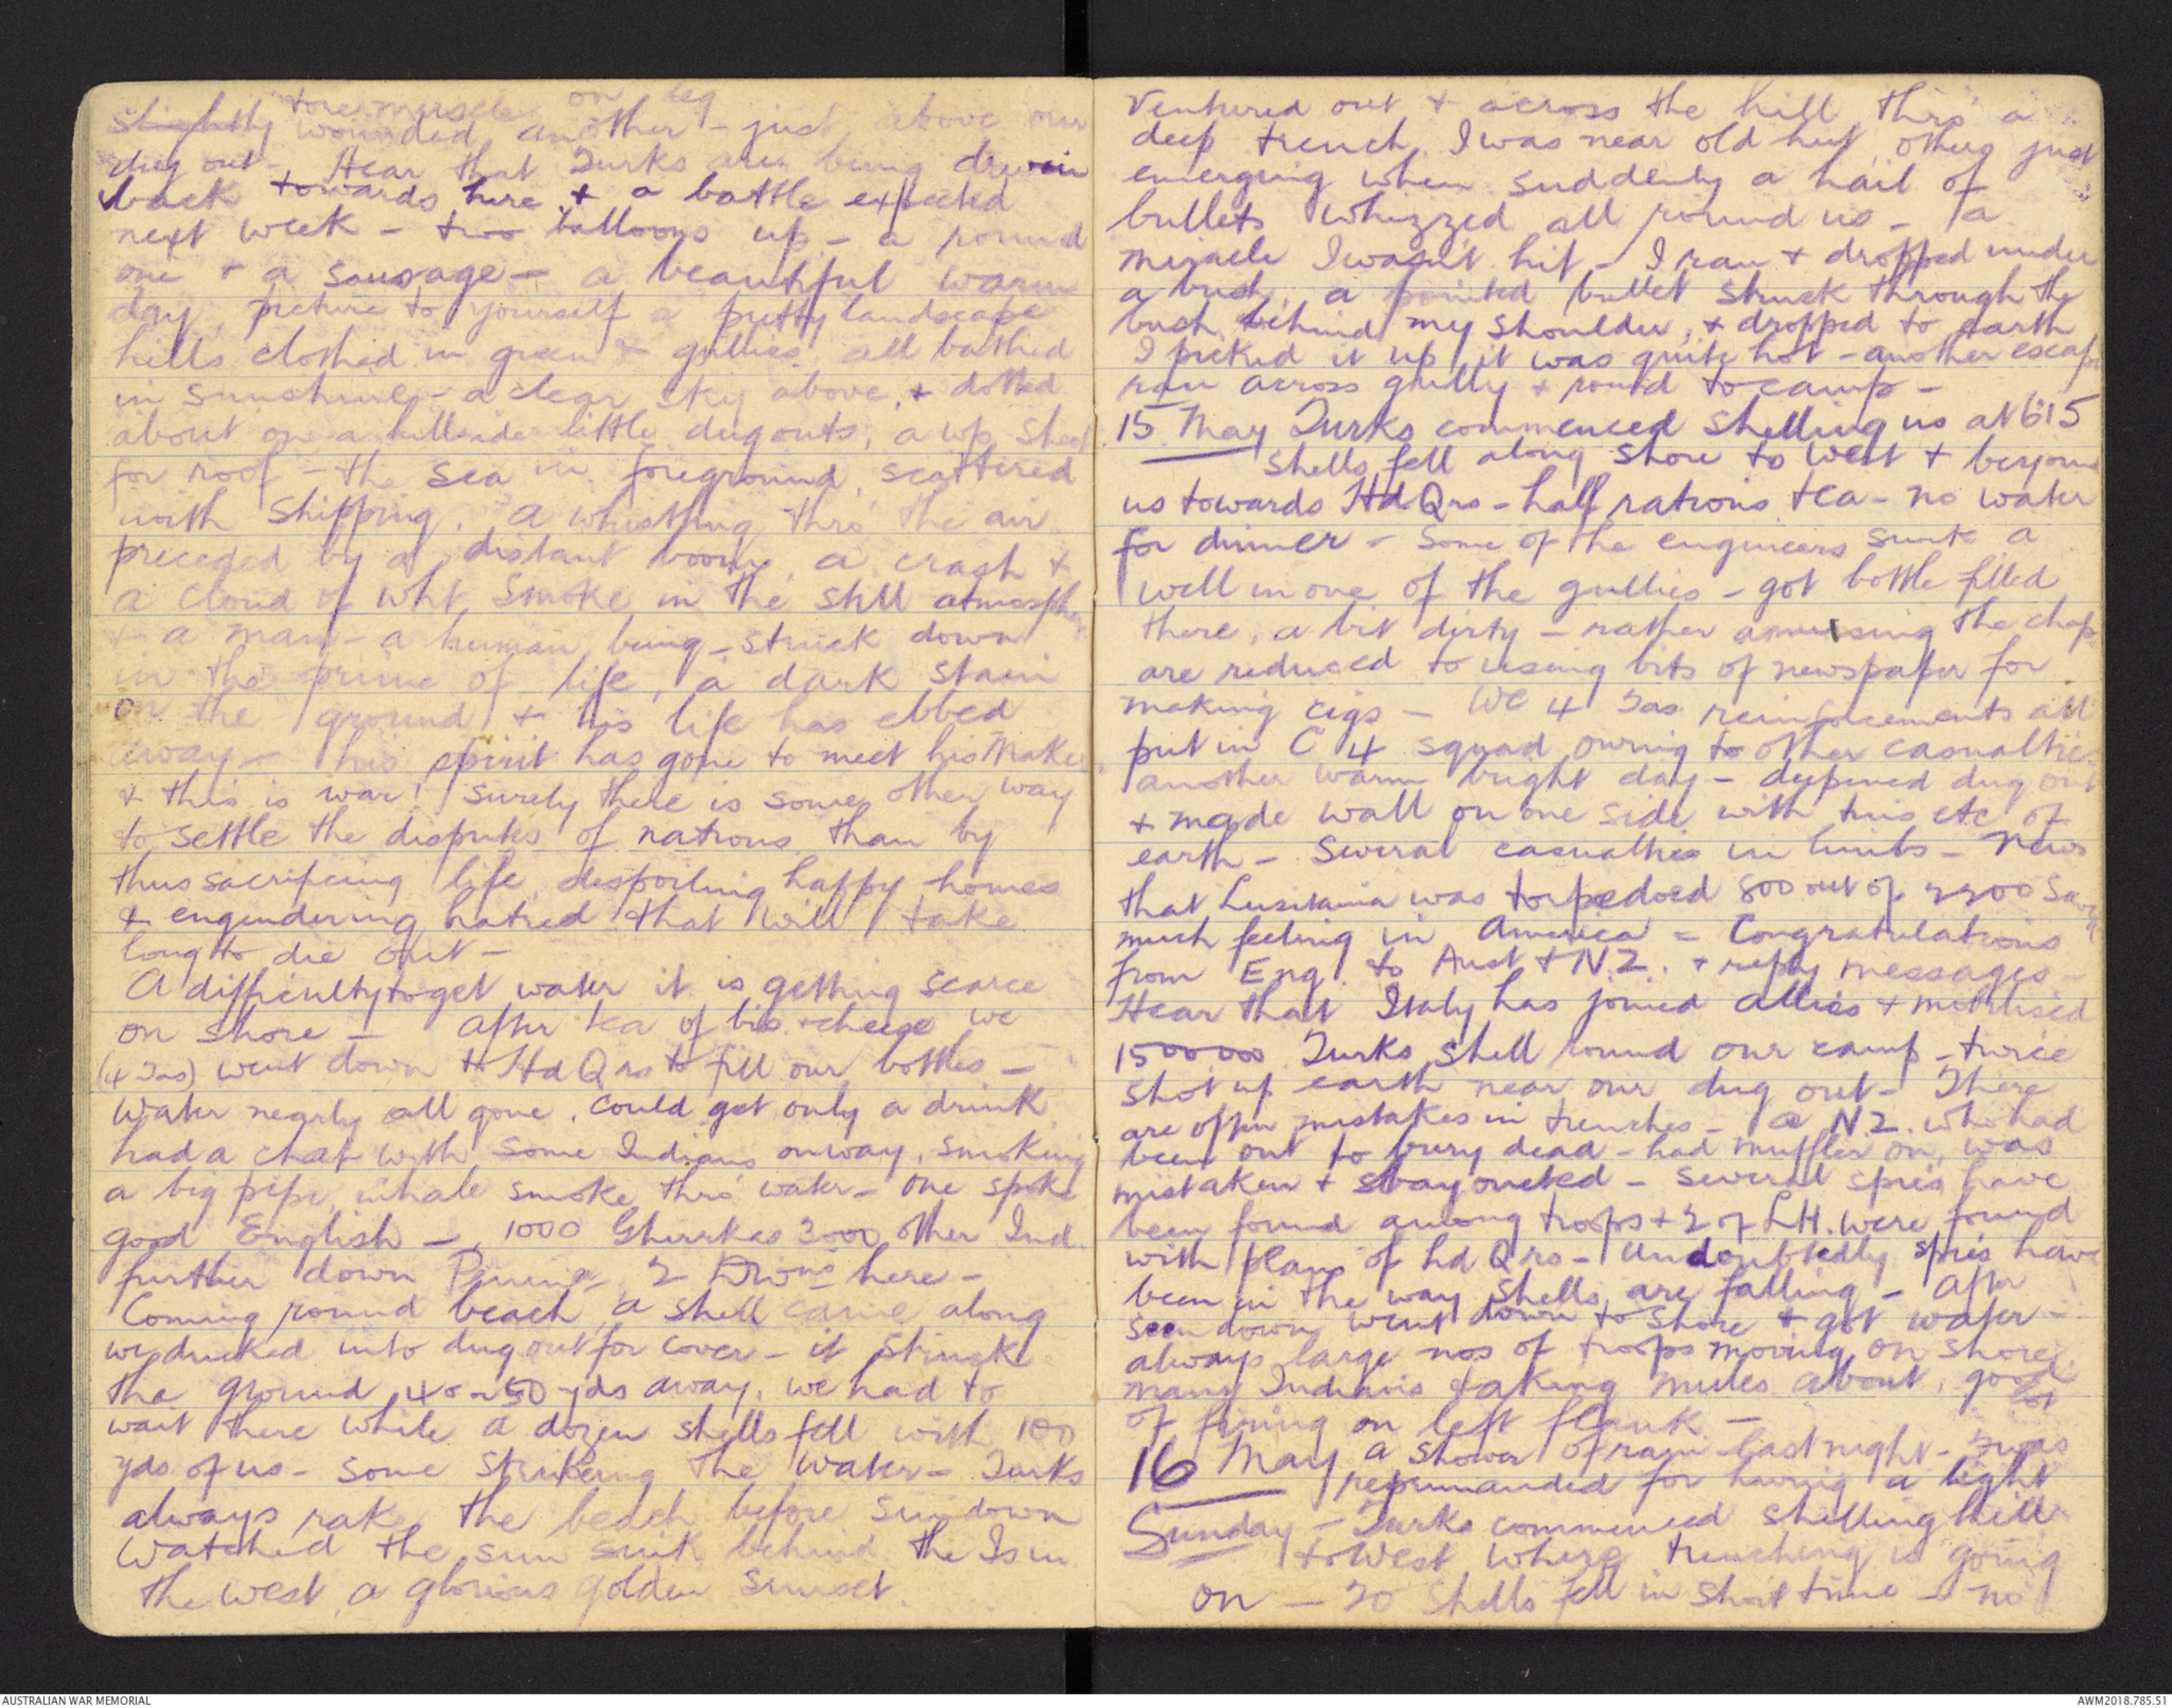 tore muscle on leg
slightly wounded another - just above our
dug out - Hear that Turks are being driven
back towards here, + a battle expected
next week - two balloons up - a round
one + a sausage - a beautiful warm
day, picture to yourself a pretty landscape
hills clothed in green + gullies all bathed
in sunshine - a clear sky above, + dotted
about on a hillside little dugouts, a w/p sheet
for roof - the sea in foreground, scattered
with shipping. A whistling thro' the air
preceded by a distant boom, a crash +
a cloud of wht smoke in the still atmosphere
+ a man - a human being - struck down
in the prime of life, a dark stain
on the ground + his life has ebbed
away - his spirit has gone to meet his Maker
+ this is war! surely there is some other way
to settle the disputes of nations than by
thus sacrificing life, despoiling happy homes
+ engendering hatred that will take
long to die out -
A difficulty to get water it is getting scarce
on shore - After tea of bis. + cheese we
(4 Tas) went down to Hd Qrs to fill our bottles -
Water nearly all gone, could get only a drink
had a chat with some Indians on way, smoking
a big pipe, inhale smoke thro' water - one spoke
good English - 1000 Ghurkas 3000 other Ind.
further down Penin- 2 Divns here -
Coming round beach, a shell came along
we ducked into dug out for cover - it struck
the ground 40 or 50 yds away, we had to
wait there while a dozen shells fell with 100
yds of us - some striking the water - Turks
always rake the beach before sundown
Watched the sun sink behind the Is in
the West, a glorious golden sunset.
Ventured out + across the hill thro' a
deep trench. I was near old hut, others just
emerging when suddenly a hail of
bullets whizzed all round us - a
miracle I wasn't hit - I ran + dropped under
a bush, a pointed bullet struck through the
bush behind my shoulder, + dropped to earth
I picked it up it was quite hot - another escape
ran across gully + round to camp -
15 May Turks commenced shelling us at 6.15
shells fell along shore to West + beyond
us towards Hd Qrs - half rations tea - no water
for dinner - some of the engineers sunk a
well in one of the gullies - got bottle filled
there, a bit dirty - rather amusing the chaps
are reduced to using bits of newspaper for
making cigs - We 4 Tas reinforcements all
put in C 4 squad owing to other casualties
another warm bright day - deepened dug out
+ made wall on one side with tins etc of
earth - Several casualties in limbs - News
that Lusitania was torpedoed 800 out of 2200 saved
much feeling in America = Congratulations
from Eng. to Aust + N.Z. + reply messages -
Hear that Italy has joined allies + mobilised
1500000 Turks shell round our camp - twice
shot up earth near our dug out - There
are often mistakes in trenches - a N.Z. who had
been out to bury dead - had muffler on, was
mistaken + bayoneted - Several spies have
been found among troops + 2 of LH. were found
with plans of hd Qrs - Undoubtedly spies have
been in the way shells are falling - After
sun down went down to shore + got water -
always large nos of troops moving on shore
many Indians taking mules about, good lot
of firing on left flank. -
16 May a shower of rain last night - I was
reprimanded for having a light
Sunday - Turks commenced shelling hill
to West where trenching is going
on - 20 shells fell in short time - no
AUSTRALIAN WAR MEMORIAL
AWM2018.785.51